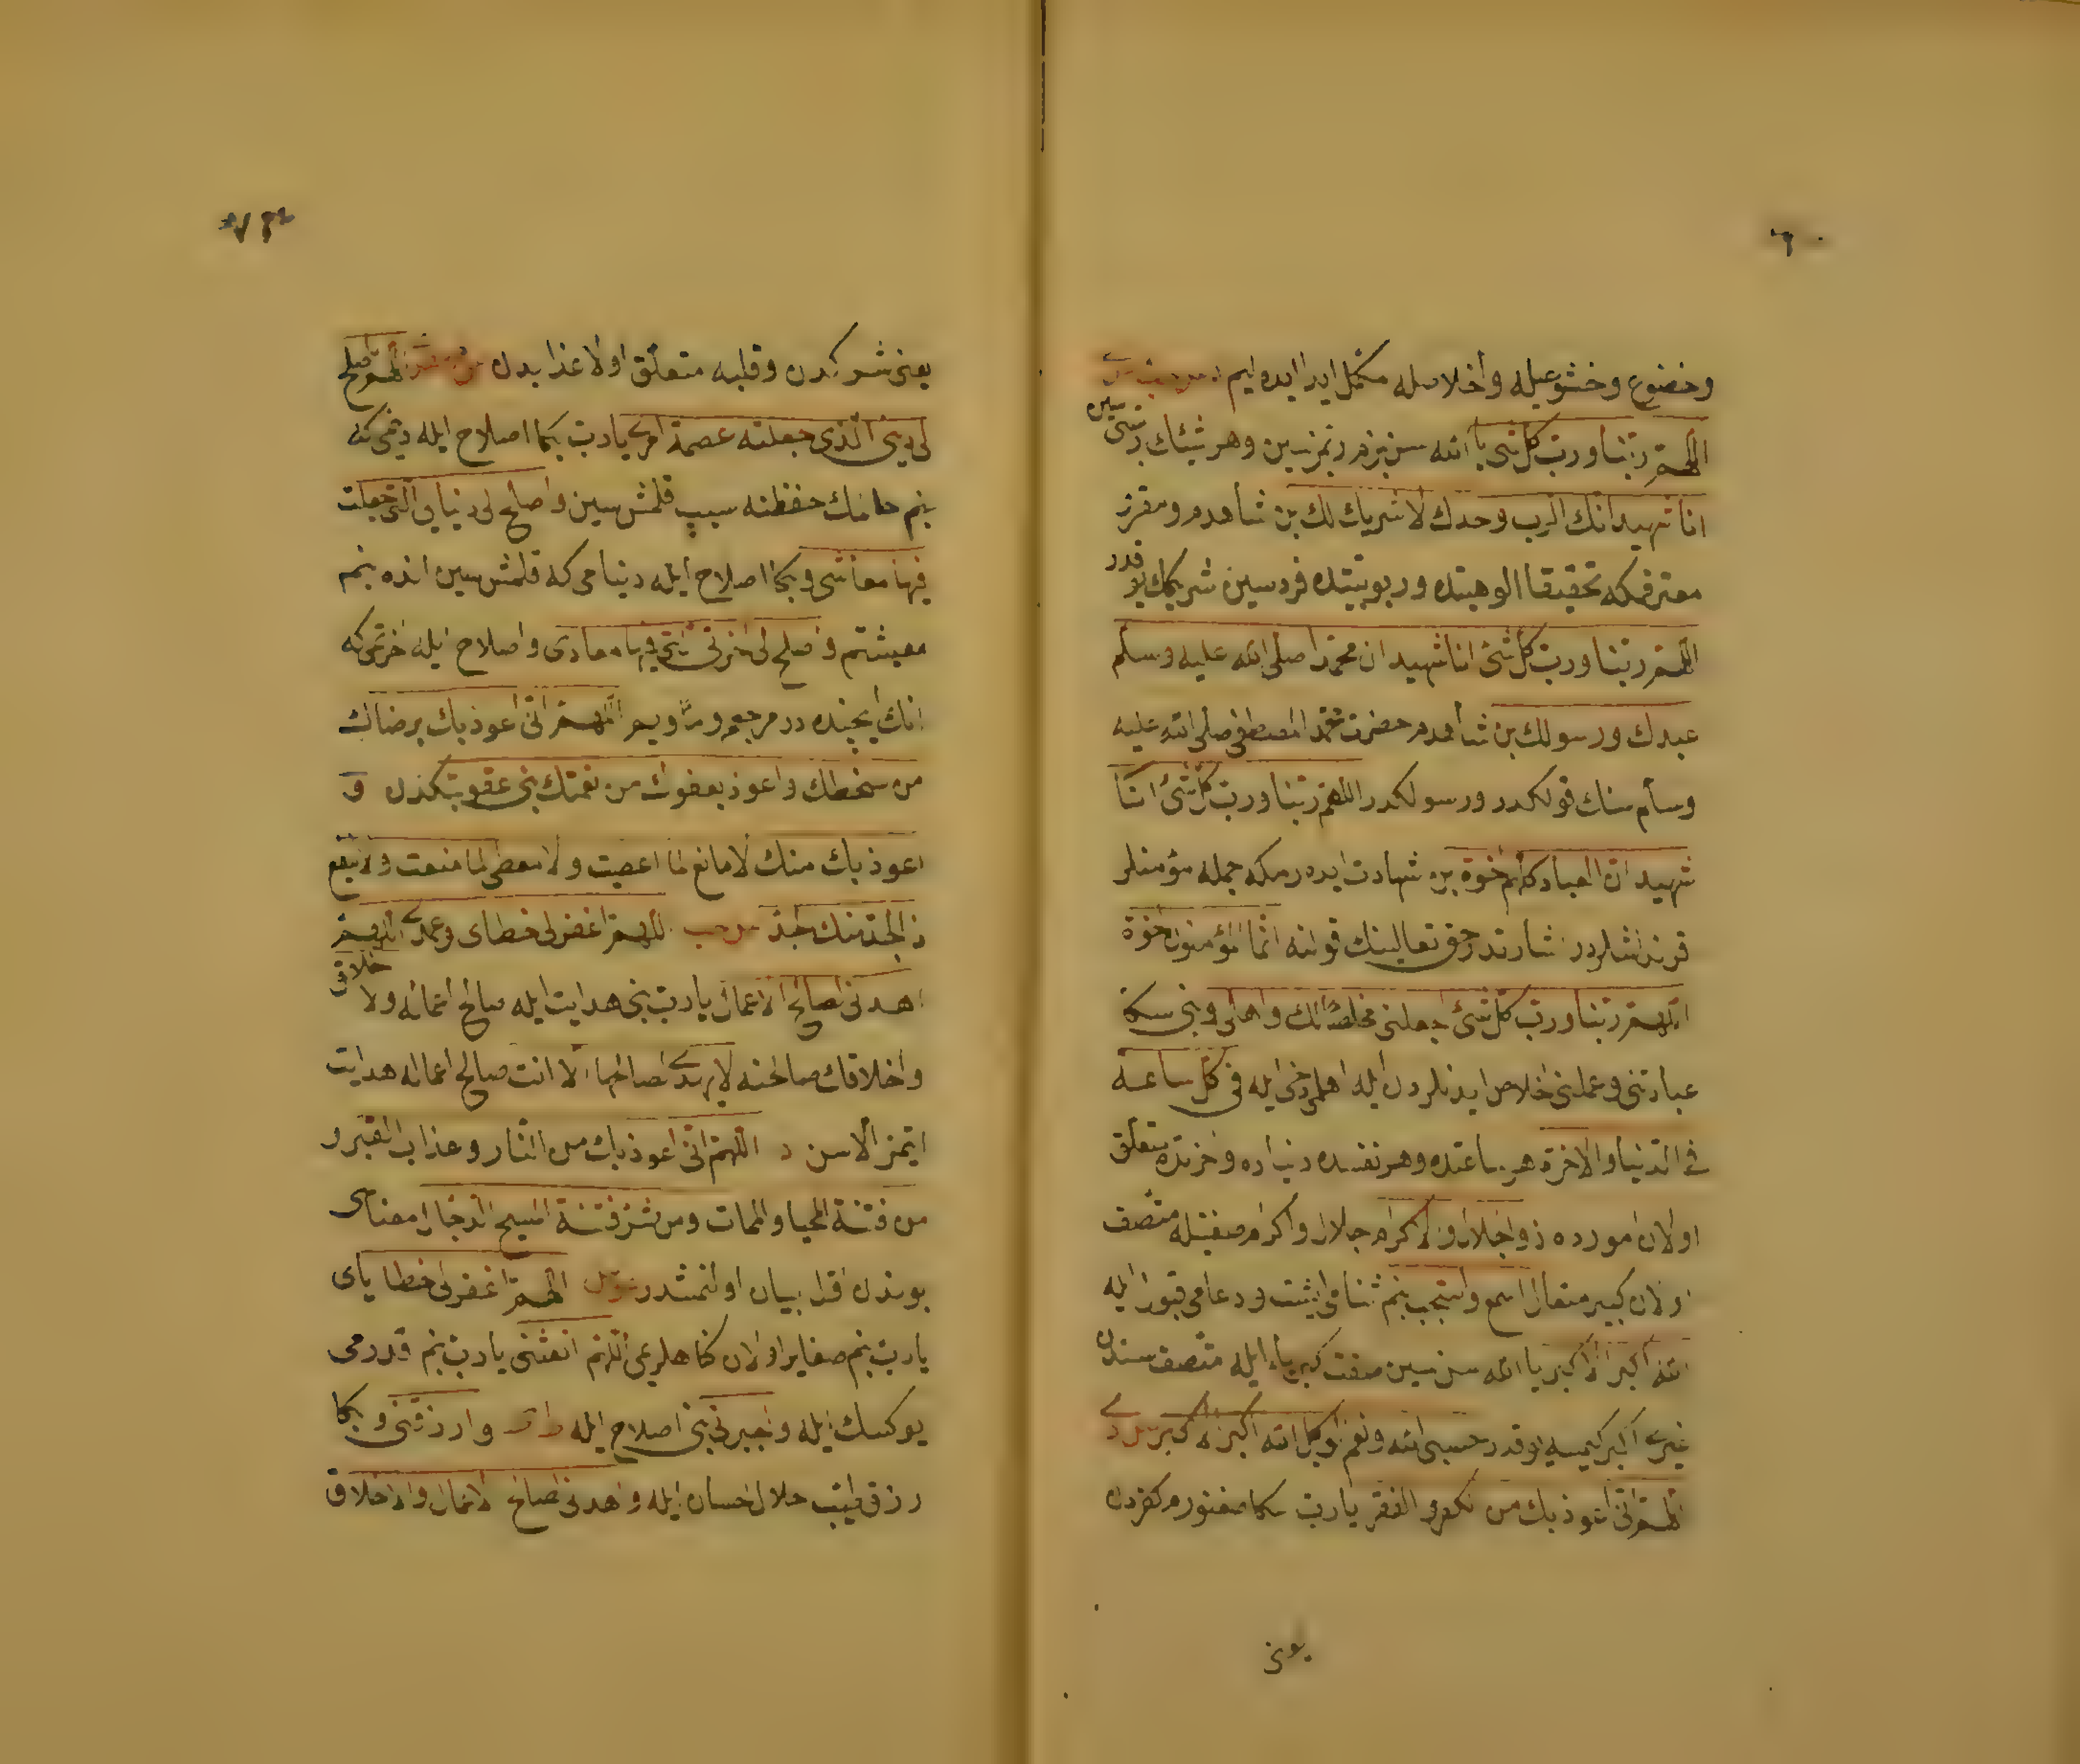 ٦٠
وخضوع وخشوعيله واخلاصله مكمل ايدرايده ليم
اللهم ربنا ورب كل شئ يا الله سن بزم ربمزسين وهر شيئك ربى سين
انا شهيد انك الرب وحدك لا شريك لك بن شاهدم ومقرم
معترفمكه تحقيقا الوهيتده وربوبيتده فردسين شريكك يوقدر
اللهم ربنا ورب كل شئ انا شهيد ان محمدا صلى الله عليه وسلم
عبدك ورسولك بن شاهدم حضرت محمد المصطفى صلى الله عليه
وسلم سنك قولكدر ورسولكدر اللهم ربنا ورب كل شئ انا
شهيد ان العباد كلهم اخوة بن شهادت ايدرمكه جمله مؤمنلر
قرنداشلردر اشارتدر حق تعالينك قولنه انما المؤمنون اخوة
اللهم ربنا ورب كل شئ اجعلنى مخلصا لك واهلى وبنى سكا
عبادتنى وعملنى اخلاص ايدنلردن ايله اهلمى دخى ايله فى كل ساعة
فى الدنيا والاخرة هر ساعتده وهر نفسده دنياده واخرتده متعلق
اولان امورده ذو الجلال والاكرام جلال واكرام صفتيله متصف
اولان كبير متعال اسمع واستجب بنم ثنامى ايشت ودعامى قبول ايله
الله اكبر الاكبر يا الله سن سين صفت كبرياء ايله متصف سندن
غيرى اكبر كيمسه يوقدر حسبى الله ونعم الوكيل الله اكبر الاكبر
اللهم انى اعوذ بك من الكفر والفقر يارب سكا صغنورم كفردن
يعنى
يعنى شركدن وقلبه متعلق اولان غذابدن اللهم اصلح
لى دينى الذى جعلته عصمة امرى يارب بكا اصلاح ايله دينمى كه
بنم حفظنه سبب قلمش سين واصلح لى دنياى التى جعلت
فيها معاشى وبكا اصلاح ايله دنيامى كه قلمش سين انده بنم
معيشتم واصلح لى اخرتى التى فيها معادى واصلاح ايله اخرتمى كه
انك ايچنده در مرجعم اللهم انى اعوذ بك برضاك
من سخطك واعوذ بعفوك من نقمتك بنى عقوبتكدن و
اعوذ بك منك لا مانع لما اعطيت ولا معطى لما منعت ولا ينفع
ذا الجد منك الجد اللهم اغفر لى خطاى وعمدى اللهم
اهدنى لصالح الاعمال يارب بنى هدايت ايله صالح اعماله ولاخلاق
واخلاقك صالحنه لا يهدى لصالحها الا انت صالح اعماله هدايت
ايتمز الا سن اللهم انى اعوذ بك من النار وعذاب القبر و
من فتنة المحيا والممات ومن شر فتنة المسيح الدجال معناسى
بوندن اقدم بيان اولنمشدر اللهم اغفر لى خطاياى
يارب بنم صغاير اولان كناهلرمى اللهم انعشنى يارب بنم قدرمى
يوكسك ايله واجبرنى بنى اصلاح ايله وارزقنى وبكا
رزق طيب حلال احسان ايله واهدنى لصالح الاعمال والاخلاق